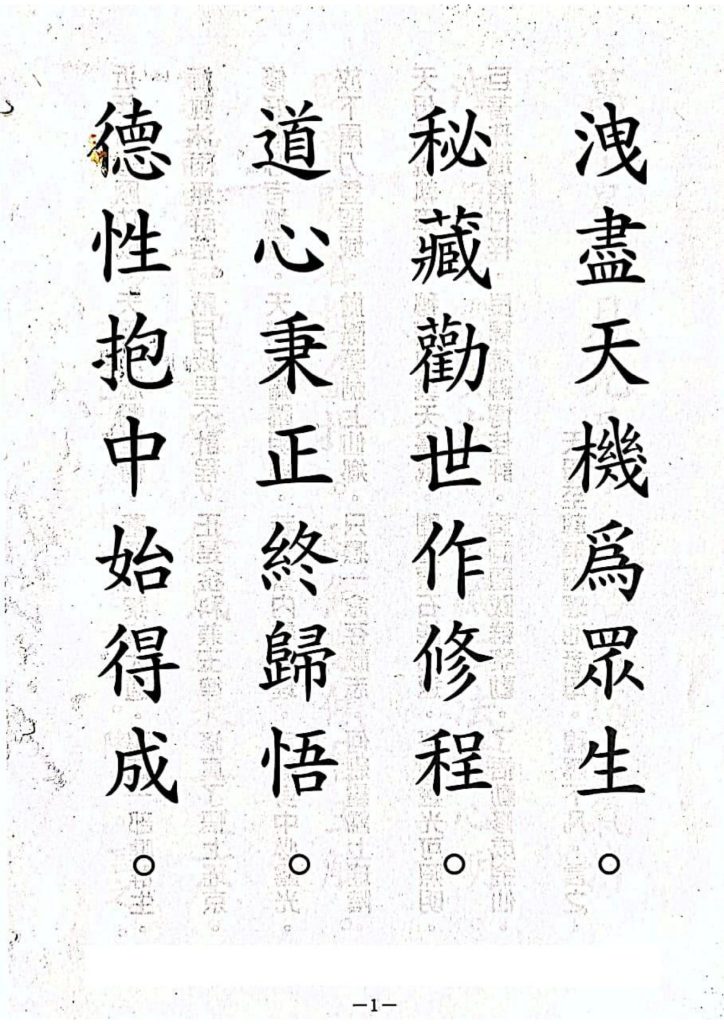 洩盡天機爲眾生。
秘藏勸世作修程。
道心秉正終歸悟。
德性抱中始得成。
—1—